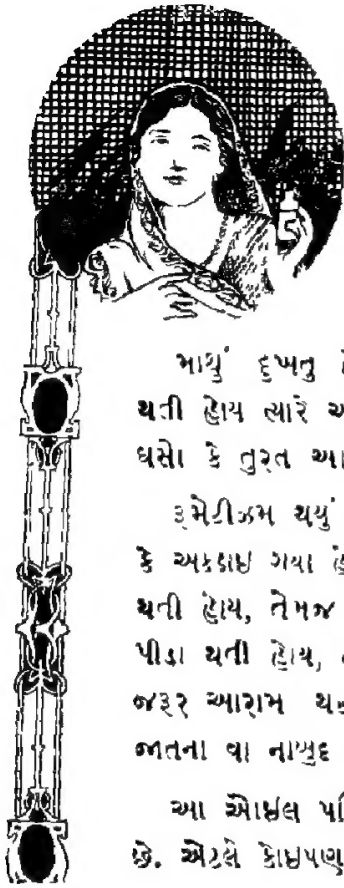 માથું દુખતુ
થતી હોય ત્યારે
ઘસો કે તુરત
રૂમેટીઝમ થયું
કે અકડાઇ ગયા
થતી હોય, તેમજ
પીડા થતી હોય,
જરૂર આરામ
જાતના વા નાબુદ
આ ઓઇલ
છે. એટલે કોઇપણ